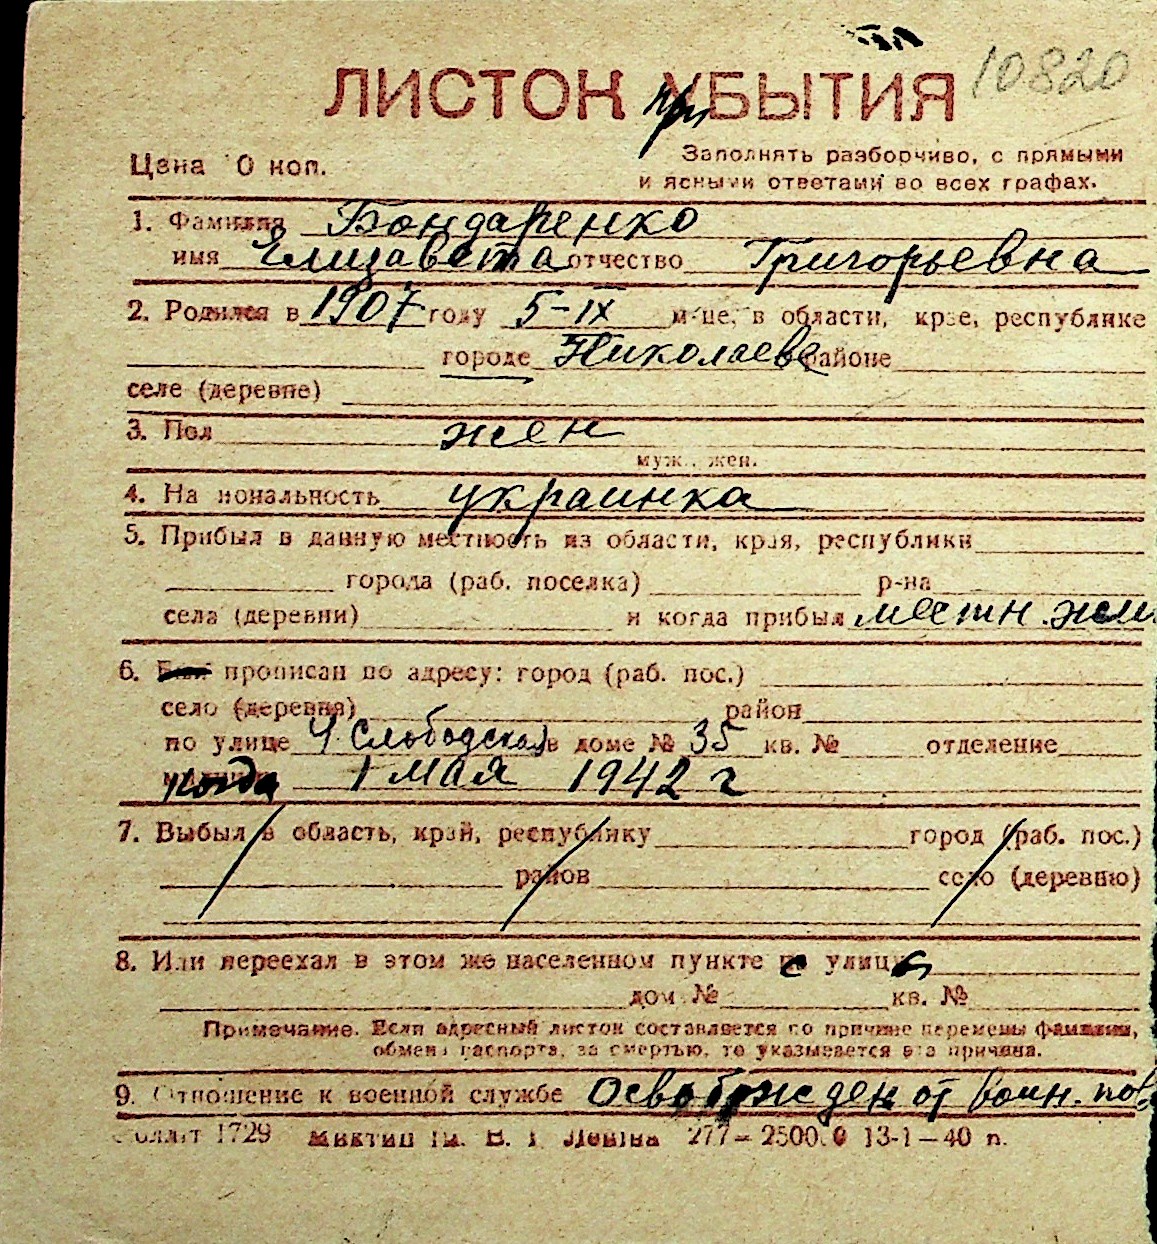 10820
ЛИСТОК прИБЫТИЯ
Цена 0 коп.
Заполнять разборчиво, с прямыми
и ясными ответами во всех графах.
1. Фамилия Бондаренко
имя Елизавета отчество Григорьевна
2. Родился в 1907 году 5-IX м-це, в области, крае, республике
городе Николаеве районе
селе (деревне)
3. Пол жен
муж., жен.
4. Национальность украинка
5. Прибыл в данную местность из области, края, республики
города (раб. поселка) р-на
села (деревни) и когда прибыл местн. жит.
6. прописан по адресу: город (раб. пос.)
село (деревня) район
по улице Ч. Слободская в доме № 35 кв. № отделение
когда 1 мая 1942 г
7. Выбыл в область, край, республику город (раб. пос.)
район село (деревню)
8. Или переехал в этом же населенном пункте с улицы
дом № кв. №
Примечание. Если адресный листок составляется по причине перемены фамилии,
обмена паспорта, за смертью, то указывается эта причина.
9. Отношение к военной службе Освобожден от воин. пов
1729 им. В. І Леніна 277— 13-1—40 п.